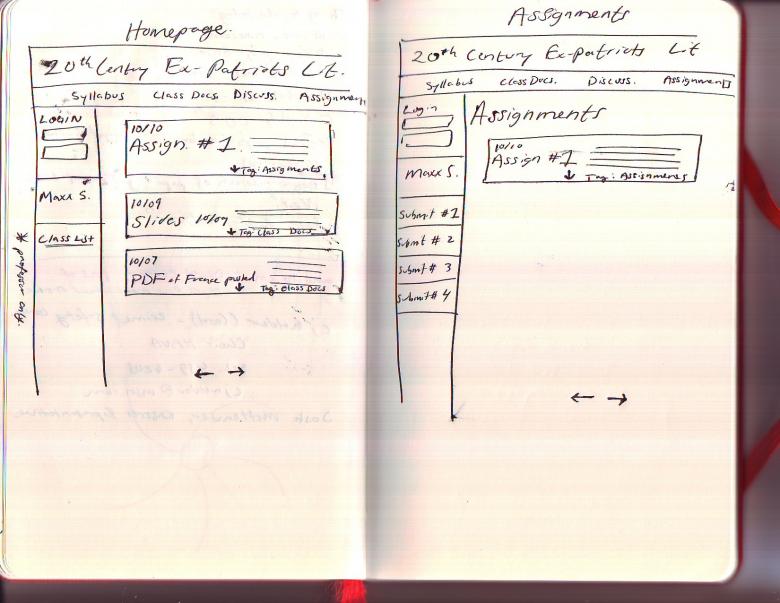 Homepage.
20th Century Ex-Patriots Lit.
Syllabus Class Docs. Discuss. Assignments
LOGIN
Maxx S.
Class List
* professor only.
10/10
Assign. #1
Tag: Assignments
10/09
Slides 10/09
Tag: Class Docs
10/07
PDF of France posted
Tag: Class Docs
← →
Assignments
20th Century Ex-Patriots Lit
Syllabus Class Docs. Discuss. Assignments
Login
Maxx S.
Submit #1
Submit # 2
Submit # 3
Submit # 4
Assignments
10/10
Assign #1
Tag: Assignments
← →